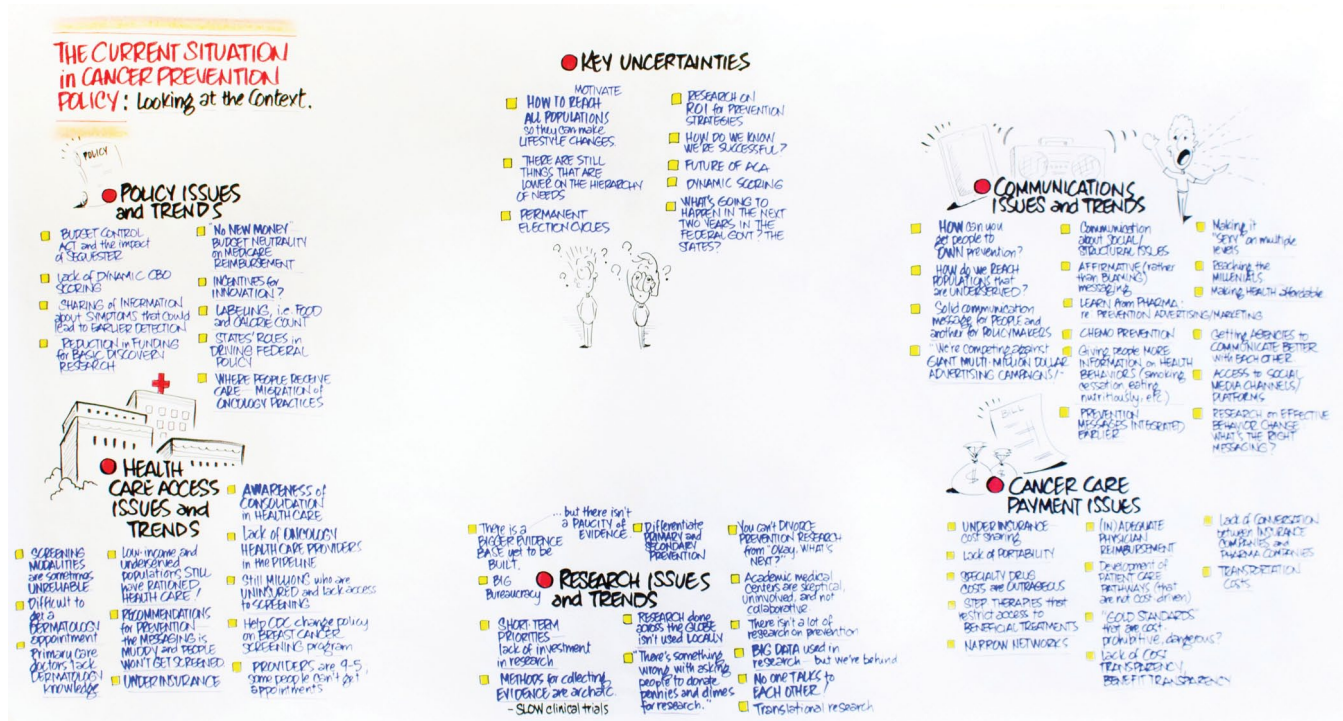 THE CURRENT SITUATION
in CANCER PREVENTION
POLICY: Looking at the Context.
POLICY
POLICY ISSUES
and TRENDS
BUDGET CONTROL
ACT and the impact
of SEQUESTER
Lack of DYNAMIC CBO
SCORING
SHARING of INFORMATION
about SYMPTOMS that could
lead to EARLIER DETECTION
REDUCTION in FUNDING
for BASIC DISCOVERY
RESEARCH
"No NEW MONEY"
BUDGET NEUTRALITY
on MEDICARE
REIMBURSEMENT
INCENTIVES for
INNOVATION?
LABELING, i.e. FOOD
and CALORIE COUNT
STATES' ROLES in
DRIVING FEDERAL
POLICY
WHERE PEOPLE RECEIVE
CARE - MIGRATION of
ONCOLOGY PRACTICES
HEALTH
CARE ACCESS
ISSUES and
TRENDS
SCREENING
MODALITIES
are sometimes
UNRELIABLE
Difficult to
get a
DERMATOLOGY
appointment
Primary care
doctors lack
DERMATOLOGY
knowledge
Low-income and
underserved
populations STILL
have RATIONED
HEALTH CARE!
RECOMMENDATIONS
for PREVENTION
the MESSAGING is
MUDDY and PEOPLE
WON'T GET SCREENED
UNDERINSURANCE
AWARENESS of
CONSOLIDATION
in HEALTH CARE
Lack of ONCOLOGY
HEALTH CARE PROVIDERS
in the PIPELINE
Still MILLIONS who are
UNINSURED and lack access
to SCREENING
Help CDC change policy
on BREAST CANCER
SCREENING program
PROVIDERS are 9-5,
some people can't get
appointments
KEY UNCERTAINTIES
MOTIVATE
HOW TO REACH
ALL POPULATIONS
so they can make
LIFESTYLE CHANGES.
THERE ARE STILL
THINGS THAT ARE
LOWER ON THE HIERARCHY
OF NEEDS
PERMANENT
ELECTION CYCLES
RESEARCH ON
ROI for PREVENTION
STRATEGIES
HOW DO WE KNOW
WE'RE SUCCESSFUL?
FUTURE OF ACA
DYNAMIC SCORING
WHAT'S GOING TO
HAPPEN IN THE NEXT
TWO YEARS IN THE
FEDERAL GOVT? THE
STATES?
RESEARCH ISSUES
and TRENDS
There is a
BIGGER EVIDENCE
BASE yet to be
BUILT.
...but there isn't
a PAUCITY of
EVIDENCE.
BIG
Bureaucracy
SHORT TERM
PRIORITIES
lack of investment
in research
METHODS for collecting
EVIDENCE are archaic.
- SLOW clinical trials
Differentiate
PRIMARY and
SECONDARY
PREVENTION
RESEARCH done
ACROSS the GLOBE
isn't used LOCALLY
"There's something
wrong with asking
people to donate
pennies and dimes
for research."
You can't DIVORCE
PREVENTION RESEARCH
from "Okay, WHAT'S
NEXT?"
Academic medical
centers are skeptical,
uninvolved, and not
collaborative
There isn't a lot of
research on prevention
BIG DATA used in
research - but we're behind
No one TALKS to
EACH OTHER!
Translational research
COMMUNICATIONS
ISSUES and TRENDS
HOW can you
get people to
OWN prevention?
HOW do we REACH
POPULATIONS that
are UNDERSERVED?
Solid communication
message for PEOPLE and
another for POLICYMAKERS
"We're competing against
GIANT MULTI-MILLION DOLLAR
ADVERTISING CAMPAIGNS!"
Communication
about SOCIAL/
STRUCTURAL ISSUES
AFFIRMATIVE (rather
than BLAMING)
messaging
LEARN from PHARMA
re: PREVENTION ADVERTISING/MARKETING
CHEMO PREVENTION
Giving people MORE
INFORMATION on HEALTH
BEHAVIORS (smoking
cessation, eating
nutritiously, etc.)
PREVENTION
MESSAGES INTEGRATED
EARLIER
Making it
"SEXY" on multiple
levels
Reaching the
MILLENIALS
Making HEALTH affordable
Getting AGENCIES to
COMMUNICATE BETTER
with EACH OTHER
ACCESS to SOCIAL
MEDIA CHANNELS/
PLATFORMS
RESEARCH on EFFECTIVE
BEHAVIOR CHANGE
WHAT'S THE RIGHT
MESSAGING?
BILL
CANCER CARE
PAYMENT ISSUES
UNDERINSURANCE
cost sharing
Lack of PORTABILITY
SPECIALTY DRUG
COSTS are OUTRAGEOUS
STEP THERAPIES that
restrict access to
BENEFICIAL TREATMENTS
NARROW NETWORKS
(IN)ADEQUATE
PHYSICIAN
REIMBURSEMENT
Development of
PATIENT CARE
PATHWAYS (that
are not cost-driven)
"GOLD STANDARDS"
that are cost
prohibitive, dangerous?
Lack of COST
TRANSPARENCY,
BENEFIT TRANSPARENCY
Lack of CONVERSATION
between INSURANCE
COMPANIES and
PHARMA COMPANIES
TRANSPORTATION
COSTS